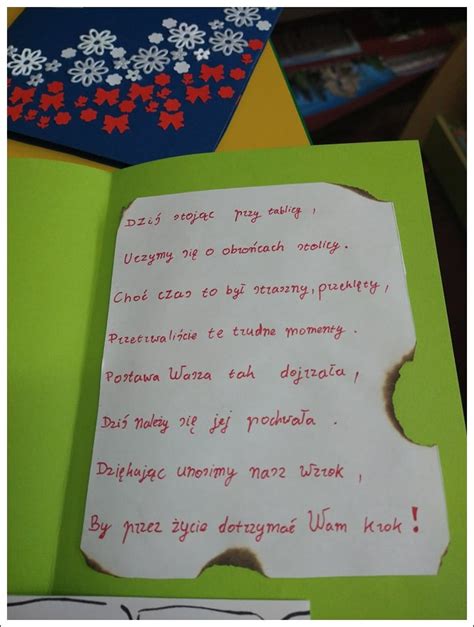 Dziś stojąc przy tablicy,
Uczymy się o obrońcach stolicy.
Choć czas to był straszny, przeklęty,
Przetrwaliście te trudne momenty.
Postawa Wasza tak dojrzała,
Dziś należy się jej pochwała.
Dziękając unosimy nasz wzrok,
By przez życie dotrzymać Wam krok!